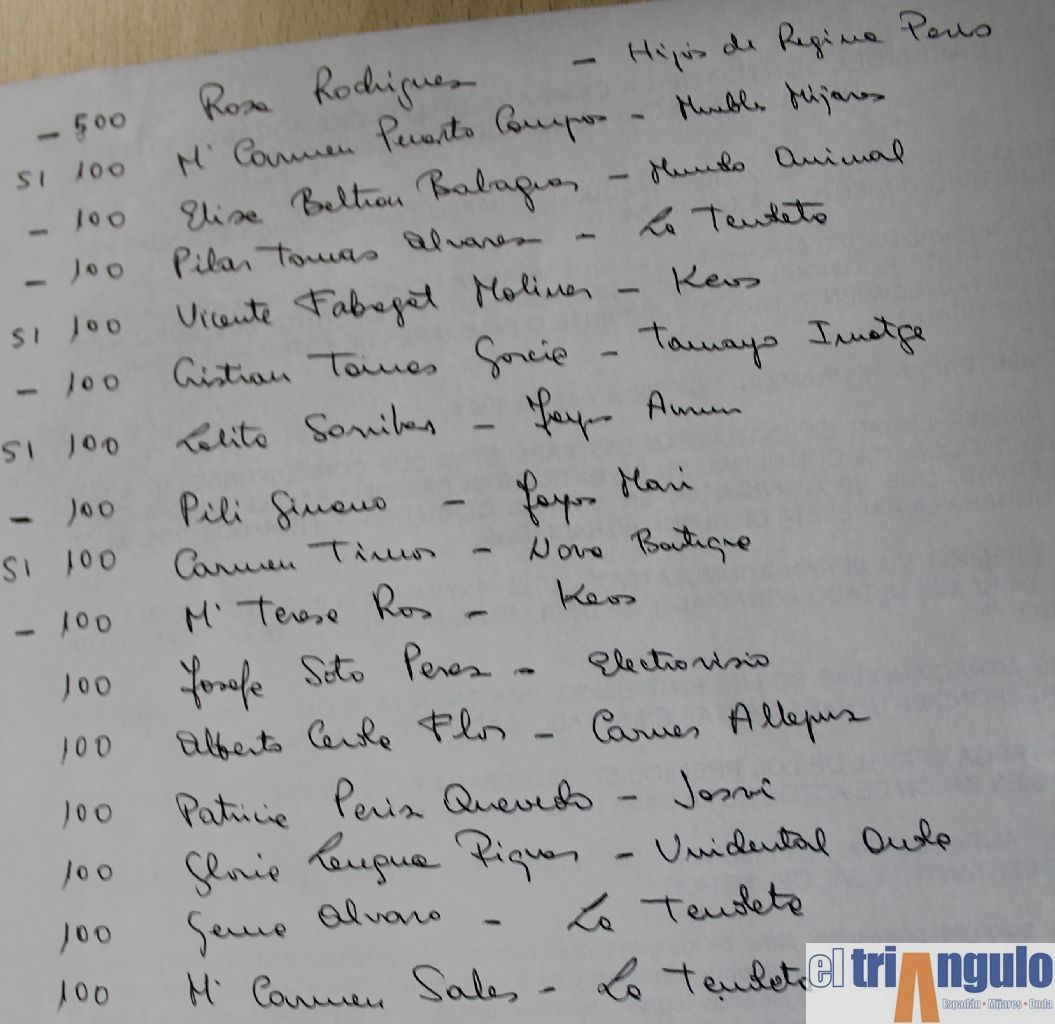 - 500 Rosa Rodrigues - Hijos de Regina
SI 100 Mª Carmen Puerto Campos - Muebles Mijares
- 100 Elisa Beltran Balaguer - Mundo Animal
- 100 Pilar Tomas Alvarez - La Tendeta
SI 100 Vicente Fabregat Moliner - Keos
- 100 Cristian Tomas Garcia - Tamayo Imatge
SI 100 Lolita - Joyas
- 100 Pili Gimeno - Joyas Mari
SI 100 Carmen - Nova Boutique
- 100 Mª Teresa Ros - Keos
100 Josefa Soto Perez - Electrovisio
100 Alberto Cerda Flors - Carnes Allepuz
100 Patricia Periz Quevedo -
100 Gloria Lengua Piquer - Unidental Onda
100 Gema Alvaro - La Tendeta
100 Mª Carmen Sales - La Tendeta
el triangulo
Espadán • Mijares • Onda